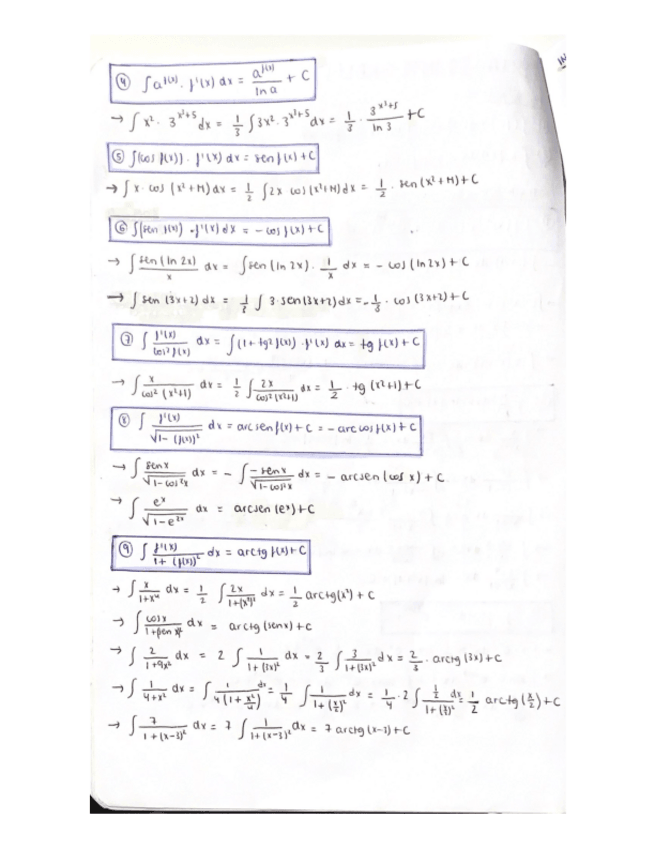 ④ ∫a^f(x) · f'(x) dx = a^f(x)/ln a + C
→ ∫x² · 3^(x³+5) dx = 1/3 ∫3x² · 3^(x³+5) dx = 1/3 · 3^(x³+5)/ln 3 + C
⑤ ∫(cos f(x)) · f'(x) dx = sen f(x) + C
→ ∫x · cos (x²+4) dx = 1/2 ∫2x cos (x²+4) dx = 1/2 · sen (x²+4) + C
⑥ ∫(sen f(x)) · f'(x) dx = - cos f(x) + C
→ ∫ sen (ln 2x)/x dx = ∫sen (ln 2x) · 1/x dx = - cos (ln 2x) + C
→ ∫ sen (3x+2) dx = 1/3 ∫ 3 · sen (3x+2) dx = - 1/3 · cos (3x+2) + C
⑦ ∫ f'(x)/cos² f(x) dx = ∫(1 + tg² f(x)) · f'(x) dx = tg f(x) + C
→ ∫ x/cos² (x²+1) dx = 1/2 ∫ 2x/cos² (x²+1) dx = 1/2 · tg (x²+1) + C
⑧ ∫ f'(x)/√(1 - (f(x))²) dx = arcsen f(x) + C = - arc cos f(x) + C
→ ∫ sen x/√(1 - cos² x) dx = - ∫ -sen x/√(1 - cos² x) dx = - arcsen (cos x) + C
→ ∫ e^x/√(1 - e^2x) dx = arcsen (e^x) + C
⑨ ∫ f'(x)/(1 + (f(x))²) dx = arctg f(x) + C
→ ∫ x/(1+x⁴) dx = 1/2 ∫ 2x/(1+(x²)²) dx = 1/2 arctg (x²) + C
→ ∫ cos x/(1+(sen x)²) dx = arctg (sen x) + C
→ ∫ 2/(1+9x²) dx = 2 ∫ 1/(1+(3x)²) dx = 2/3 ∫ 3/(1+(3x)²) dx = 2/3 · arctg (3x) + C
→ ∫ 1/(4+x²) dx = ∫ 1/(4(1+x²/4)) dx = 1/4 ∫ 1/(1+(x/2)²) dx = 1/4 · 2 ∫ (1/2)/(1+(x/2)²) dx = 1/2 arctg (x/2) + C
→ ∫ 7/(1+(x-3)²) dx = 7 ∫ 1/(1+(x-3)²) dx = 7 arctg (x-3) + C